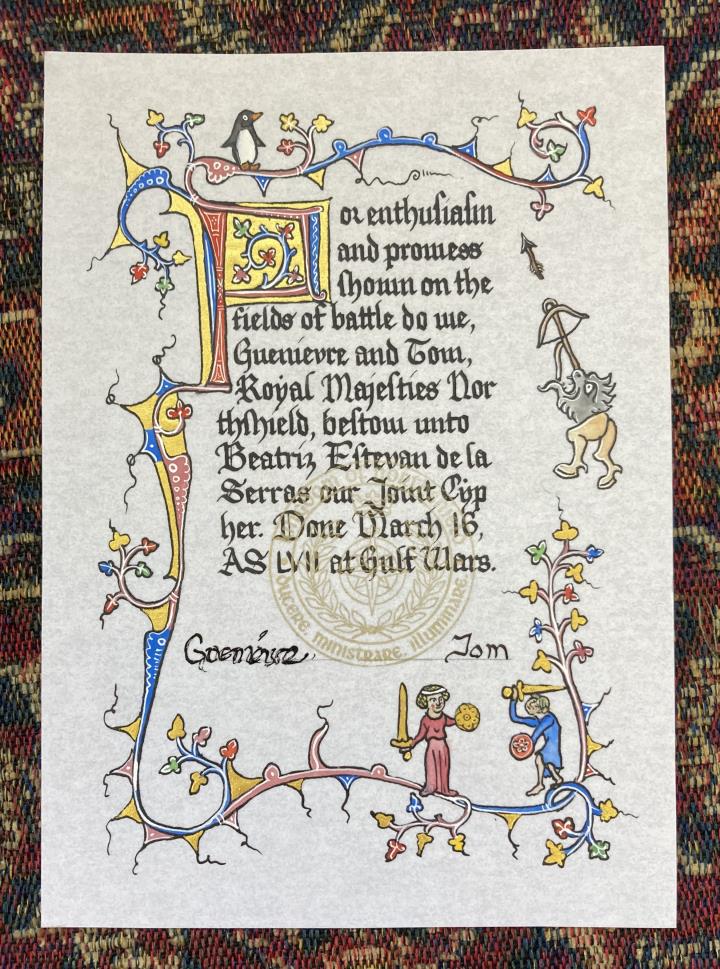 For enthusiasm
and prowess
shown on the
fields of battle do we,
Guenievre and Tom,
Royal Majesties Nor
thshield, bestow unto
Beatriz Estevan de la
Serras our Joint Cyp
her. Done March 16,
AS LVII at Gulf Wars.
DUCERE, MINISTRARE, ILLUMINARE
Guenievre
Tom